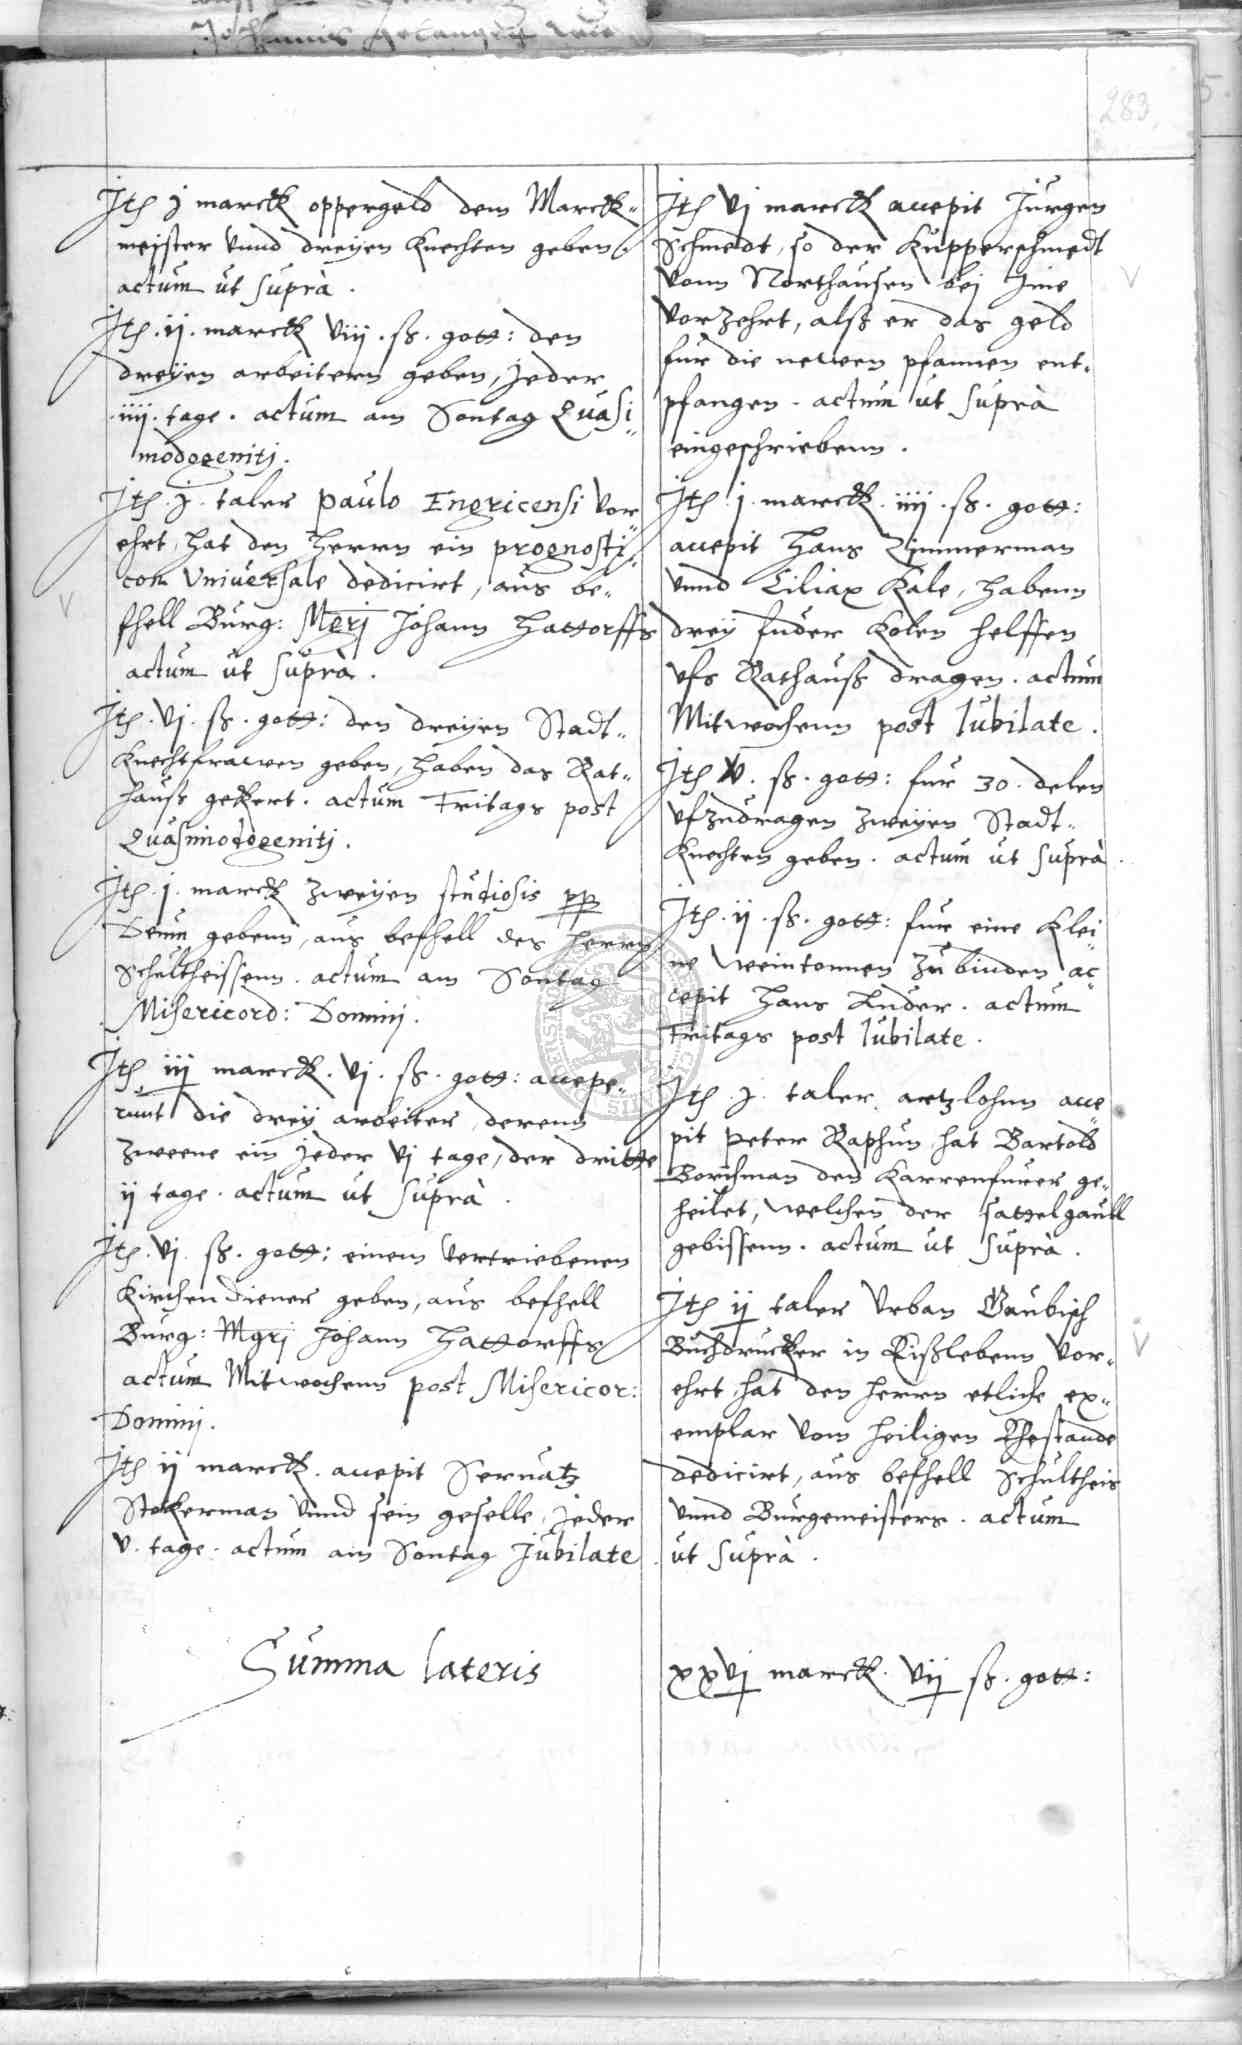 283.
Jtē j marck oppergeld dem Marck„
meister vnnd dreyen Knechten geben
actum ut suprà.
Jtē. ij. marck viij. ß. gott: den
dreyen arbeitern geben, jeder
iiij. tage. actum am Sontag Quasi„
modogenitj.
Jtē. j. taler Paulo Engricensi vor„
ehrt, hat den herrn ein prognosti„
con Vniversale dedicirt, aus be„
fhell Burg: Mgrj Johann Hattorffs
actum ut suprà.
Jtē. vj. ß. gott: den dreyen Stadt„
Knechtfrawen geben, haben das Rat„
hauß gekert. actum Fritags post
Quasimodogenitj.
Jtē. j. marck zweyen studiosis pp
Deum gebenn, aus befhell des herrn
Schultheissenn. actum am Sontag
Misericord: Dominj.
Jtē iij marck. vj. ß. gott: accepe„
runt die drey arbeiter, derenn
zweene ein jeder vj tage, der dritte
ij tage. actum ut suprà.
Jtē. vj. ß. gott: einem vertriebenen
Kirchendiener geben, aus befhell
Burg: Mgrj Johann Hattorffs
actum Mitwochenn post Misericor:
Dominj.
Jtē ij marck. accepit Seruatz
Stokerman vnnd sein geselle, jeder
v. tage. actum am Sontag Jubilate.
Summa lateris
Jtē vj marck accepit Jurgen
Schmedt, so der Kupperschmedt
vonn Northausen bej jme
vorzehrt, alß er das geld
fur die newen pfannen ent„
pfangen. actum ut suprà
eingeschriebenn.
Jtē. j. marck. iiij. ß. gott:
accepit Hans Zimmerman
vnnd Ciliax Kale, habenn
drey fuder Kolen helffen
vfs Rathauß dragen. actum
Mitwochenn post Jubilate.
Jtē v. ß. gott: fur 30. delen
vfzudragen zweyen Stadt„
Knechten geben. actum ut suprà.
Jtē. ij. ß. gott: fur eine klei„
ne weintonnen zu binden ac„
cepit Hans Luder. actum
Fritags post Jubilate.
Jtē. j. taler artzlohnn acce„
pit Peter Raphun, hat Bartold
Borchman den Karrenfurer ge„
heilet, welchen der sattelgaull
gebissenn. actum ut suprà.
Jtē ij taler Vrban Gaubisch
Buchdrucker in Eißlebenn vor„
ehrt, hat den herrn etliche ex„
emplar vom heiligen Ehestande
dedicirt, aus befhell Schultheis
vnnd Burgemeisters. actum
ut suprà.
xxvj marck. vij ß. gott: